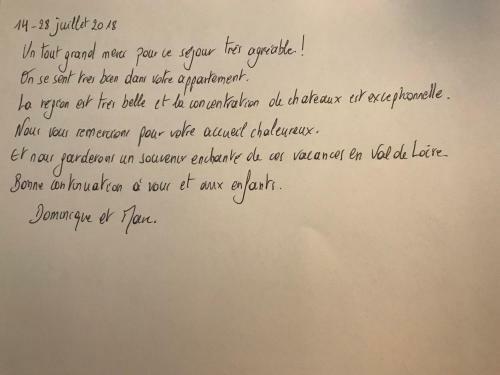 14-28 juillet 2018
Un tout grand merci pour ce séjour très agréable !
On se sent très bien dans votre appartement.
La région est très belle et la concentration de chateaux est exceptionnelle.
Nous vous remercions pour votre accueil chaleureux.
Et nous garderons un souvenir enchanté de ces vacances en Val de Loire
Bonne continuation à vous et aux enfants.
Dominique et Marc.